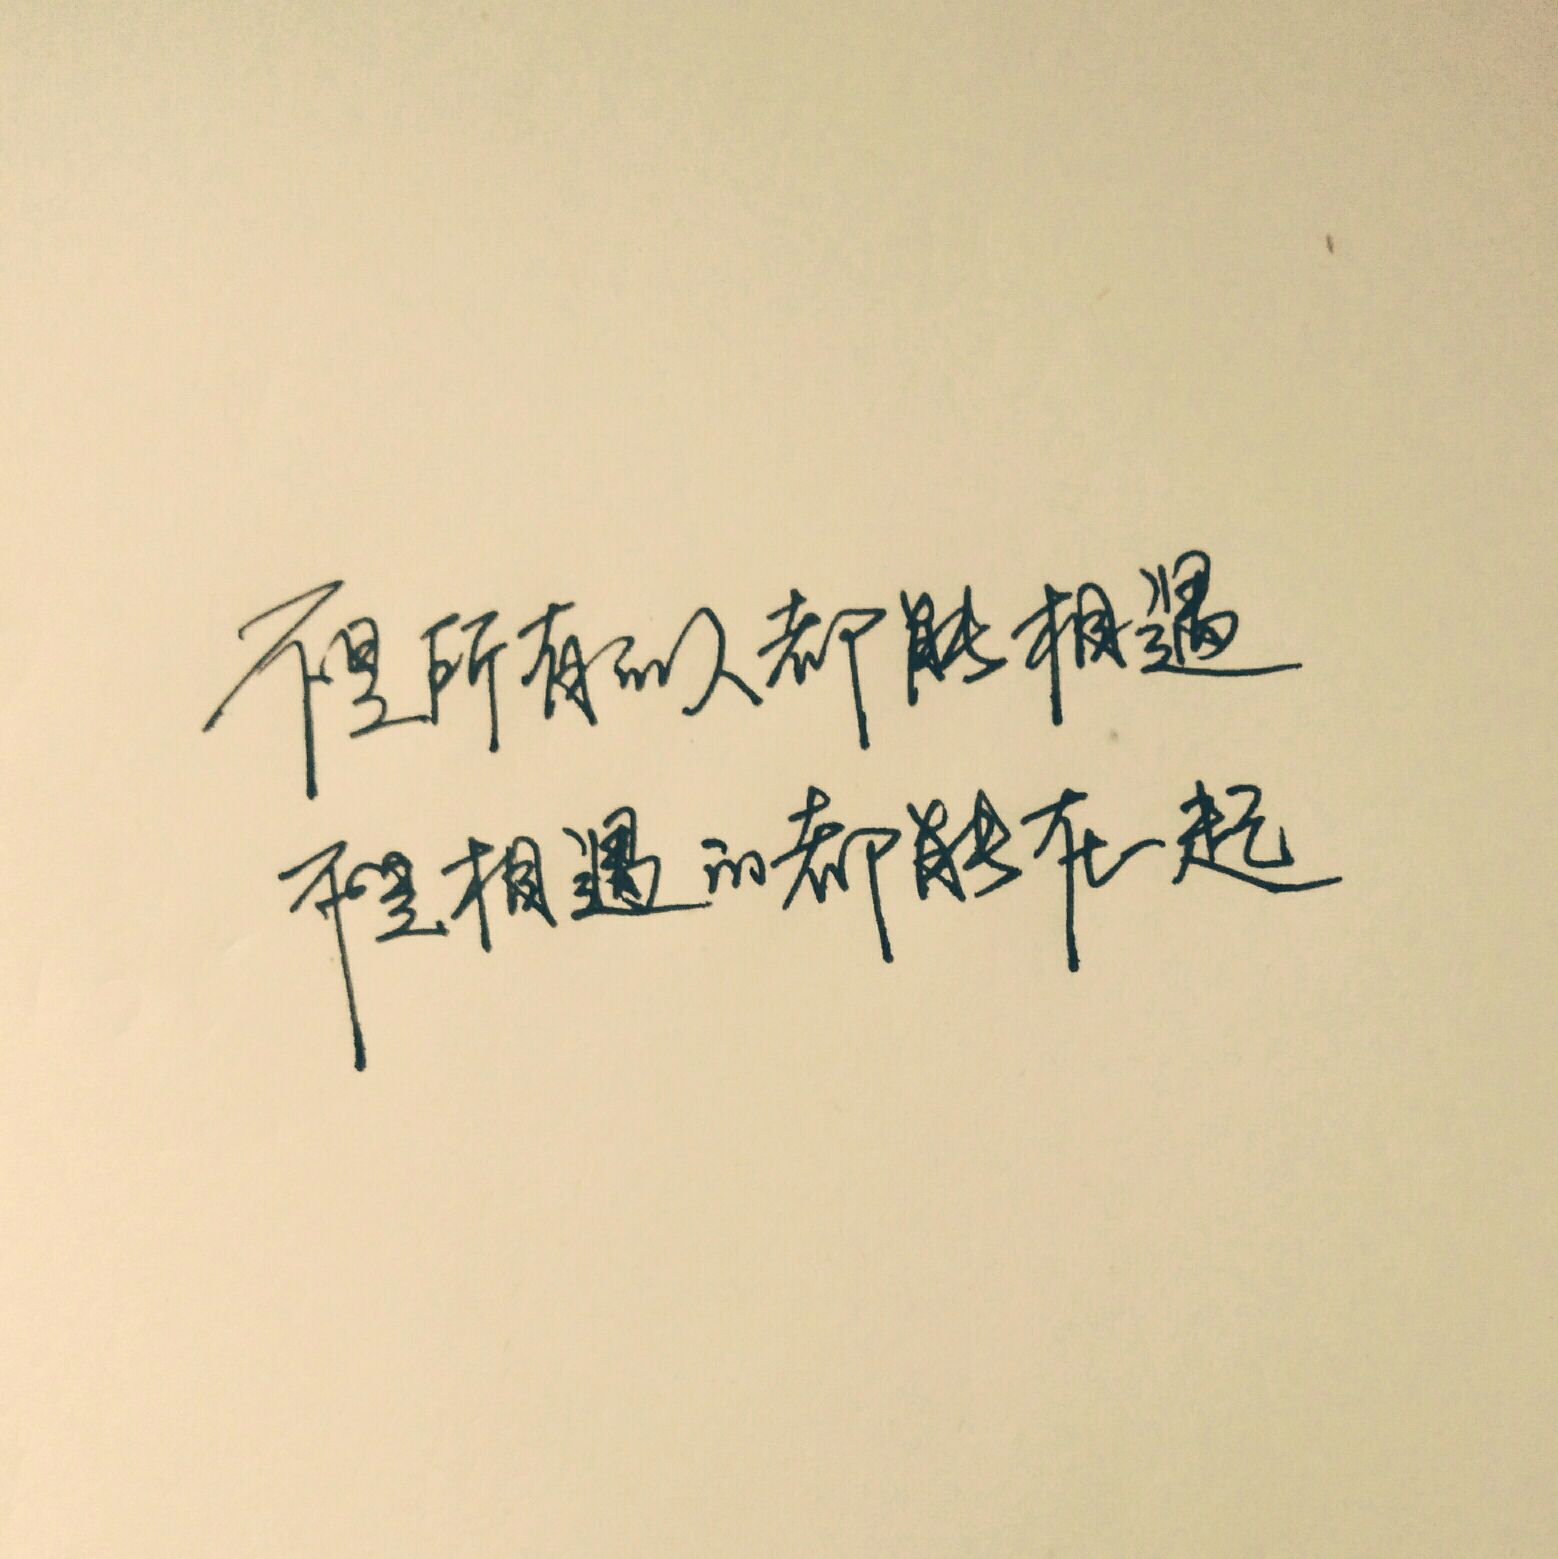 不是所有的人都能相遇
不是相遇的都能在一起